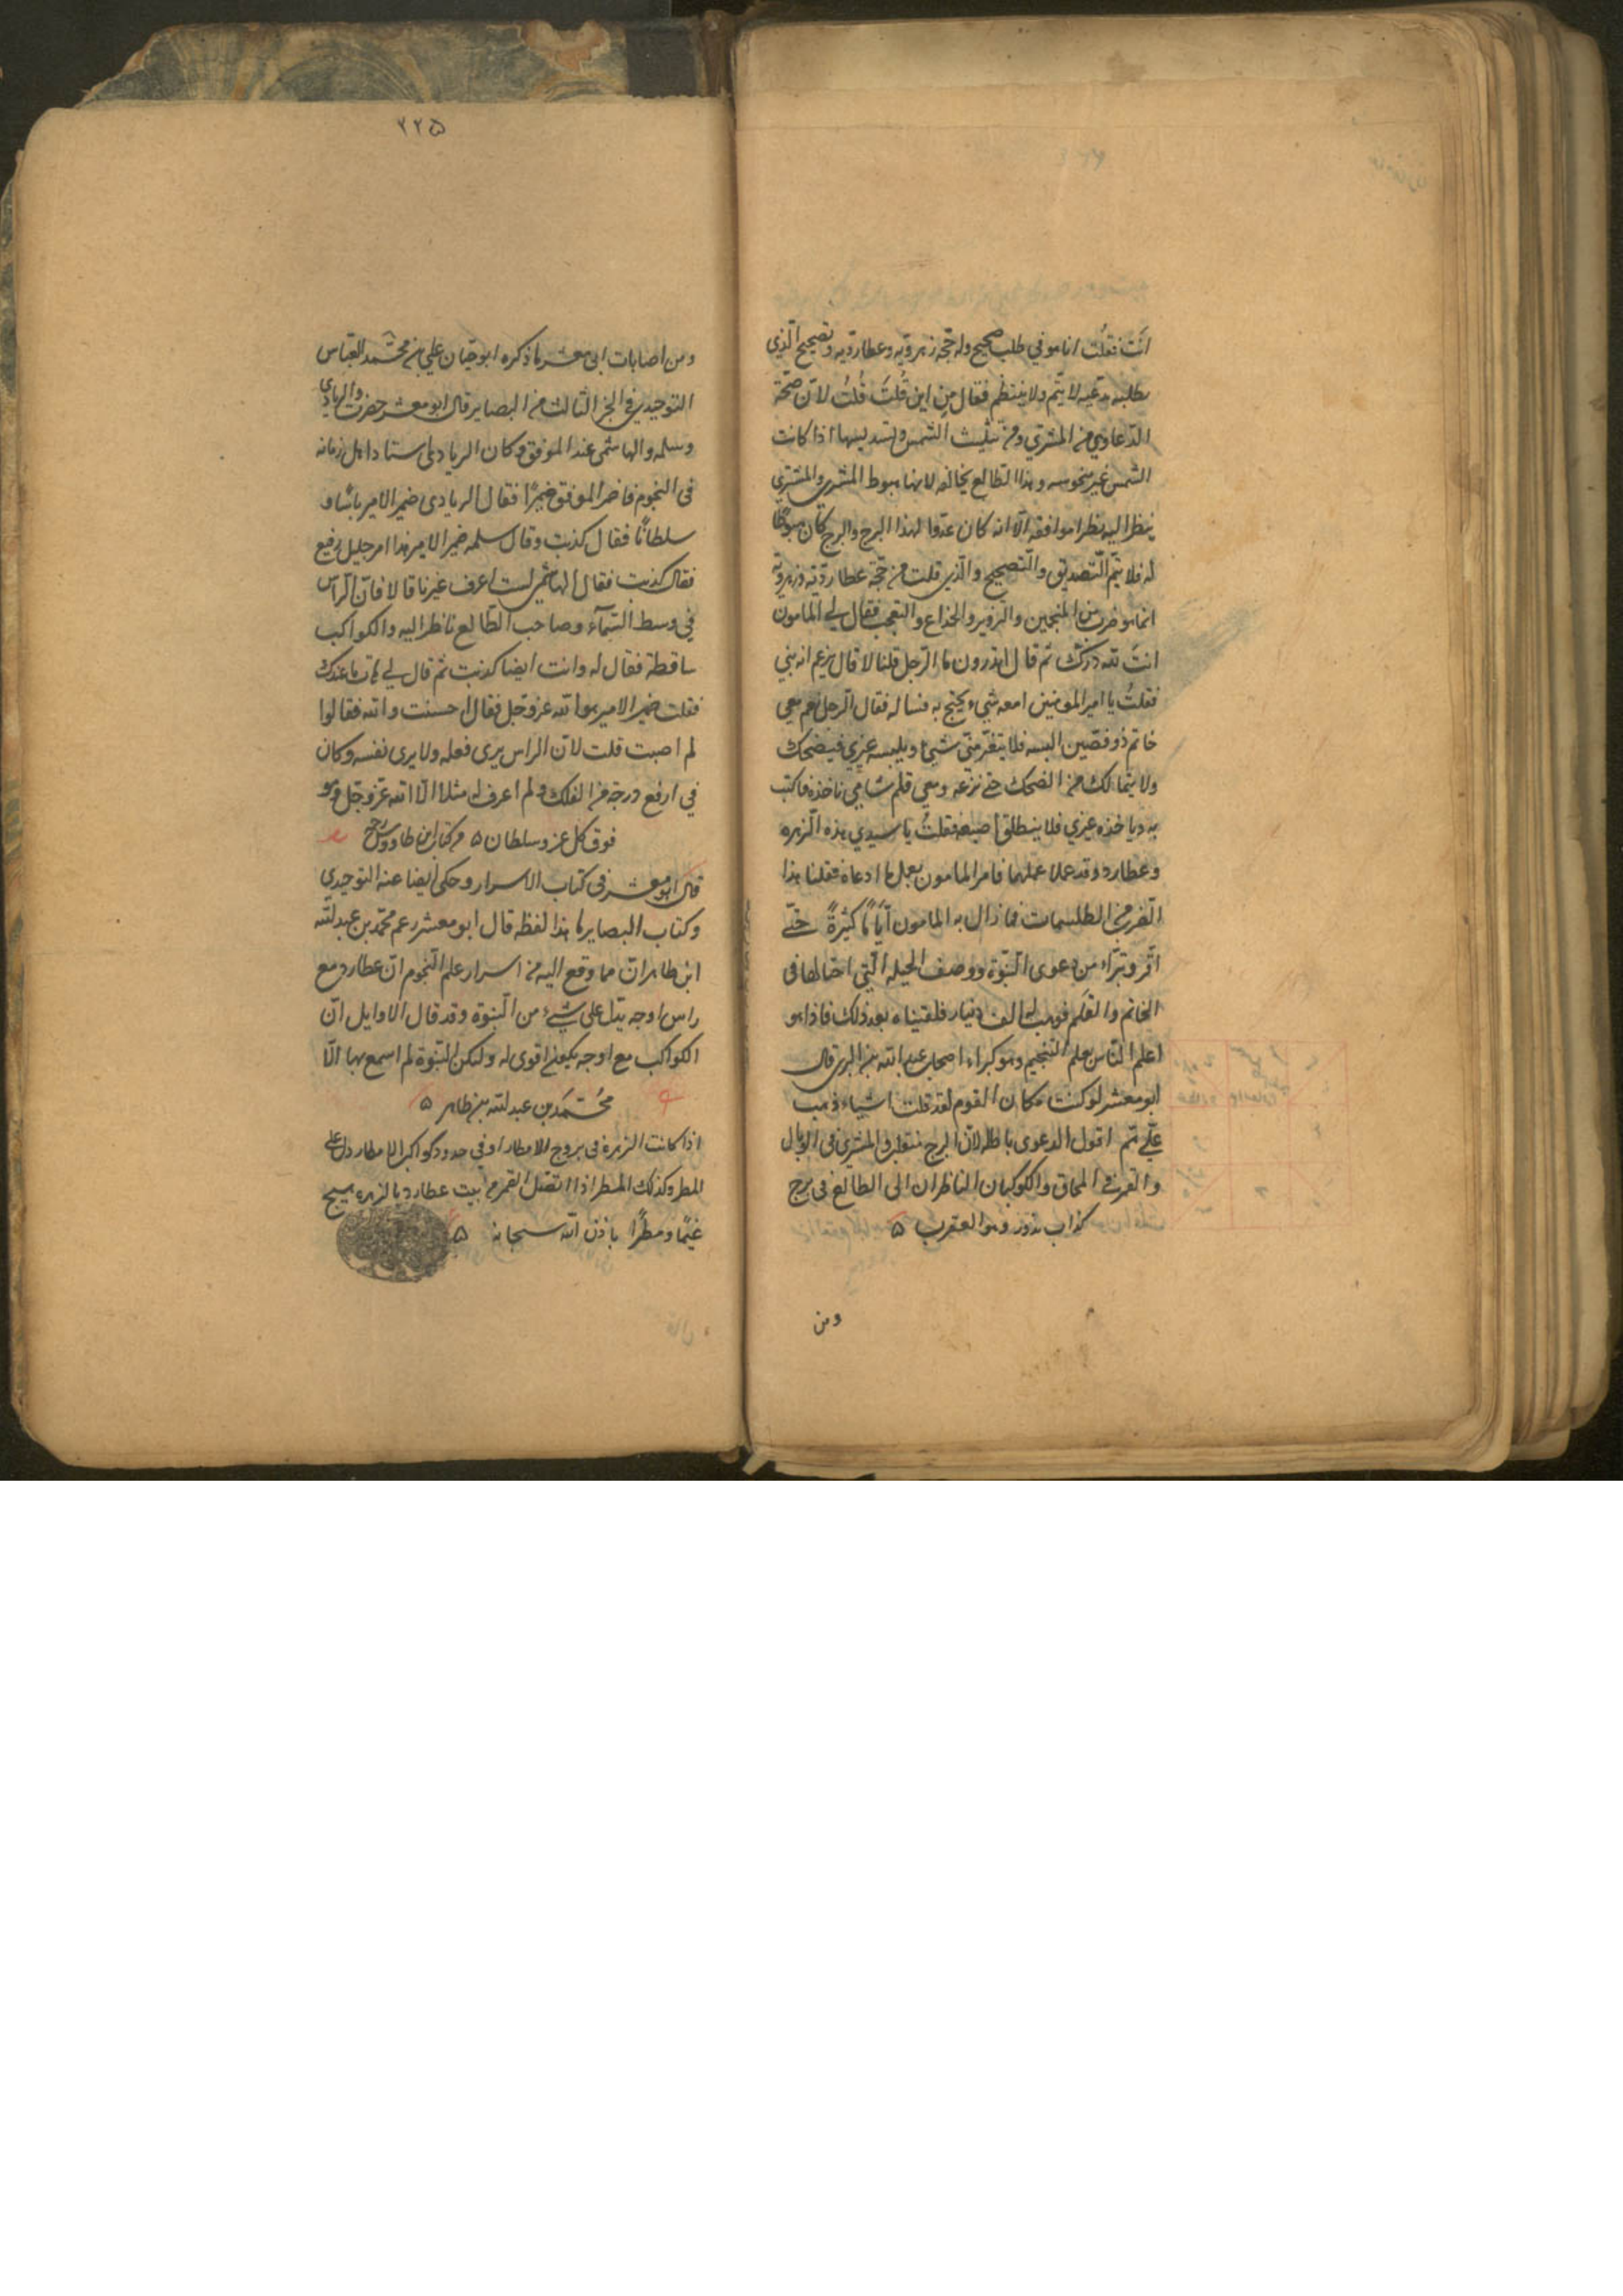 انت فقلت انا هو في طلب صحيح وله حجة زهروية وعطاردية وتصحيح الذي
يطلبه يدعيه لا يتم ولا ينتظم فقال من اين قلت قلت لان صحة
الدعاوي من المشتري ومن تثليث الشمس وتسديسها اذا كانت
الشمس غير منحوسه وهذا الطالع يخالفه لانها هبوط المشتري والمشتري
ينظر اليه نظر موافقه الا انه كان عدوا لهذا البرج والبرج كان هبوطا
له فلا يتم التصديق والتصحيح والذي قلت من حجة عطاردية وزهروية
انما هو ضرب من المنجمين والتزوير والخداع والتعجب فقال لي المامون
انت لله درك ثم قال اتدرون ما الرجل قلنا لا قال يزعم انه نبي
فقلت يا امير المومنين امعه شيء يحتج به فساله فقال الرجل نعم معي
خاتم ذو فصين البسه فلا يتغير مني شيء ويلبسه غيري فيضحك
ولا يتمالك من الضحك حتى نزعه ومعي قلم شامي ناخذه فاكتب
به ويا خذه غيري فلا ينطلق اصبعه فقلت يا سيدي هذه الزهره
وعطارد قد عملا عملهما فامر المامون بعمل ما ادعاه فقلنا هذا
الضرب من الطلسمات فما زال به المامون اياما كثيرة حتى
اقر وتبراء من دعوى النبوة ووصف الحيله التي احتالها في
الخاتم والقلم فوهب له الف دينار فلقيناه بعد ذلك فاذا هو
اعلم الناس بعلم التنجيم وهو كبراء اصحاب عبد الله بن البري قال
ابو معشر لو كنت مكان القوم لقد قلت اشياء ذهب
علي ثم اقول الدعوى باطله لان البرج منقلب والمشتري في الوبال
والقمر في المحاق والكوكبان الناظران الى الطالع في برج
كذاب مزور وهو العقرب ه
ومن
٢٢٥
ومن اصابات ابي معشر ما ذكره ابو حيان علي بن محمد العباس
التوحيدي في الجز الثالث من البصاير قال ابو معشر حضرت والريادي
وسلمه والهاشمي عند الموفق وكان الريادي استاد اهل زمانه
في النجوم فاضمر الموفق ضميرا فقال الريادي ضمير الامير باشا و
سلطانا فقال كذبت وقال سلمه ضمير الامير هذا امر جليل رفيع
فقال كذبت فقال الهاشمي لست اعرف غير ما قالا فان الراس
في وسط السماء وصاحب الطالع ناظر اليه والكواكب
ساقطة فقال له وانت ايضا كذبت ثم قال لي هات ما عندك
فقلت ضمير الامير هو الله عز وجل فقال احسنت والله فقالوا
لم اصبت قلت لان الراس يرى فعله ولا يرى نفسه وكان
في ارفع درجة من الفلك ولم اعرف له مثلا الا الله عز وجل وهو
فوق كل عز وسلطان ه من كتاب ابن طاووس رح
قال ابو معشر في كتاب الاسرار وحكى ايضا عنه التوحيدي
وكتاب البصاير ما هذا لفظه قال ابو معشر زعم محمد بن عبد الله
ابن طاهر ان مما وقع اليه من اسرار علم النجوم ان عطارد مع
راس اوجه يدل على شيء من النبوة وقد قال الاوايل ان
الكواكب مع اوجه يكون اقوى له ولكن النبوة لم اسمع بها الا
محمد بن عبد الله بن طاهر ه
اذا كانت الزهرة في بروج الامطار او في حدود كواكب الامطار دل على
المطر وكذلك المنظر اذا اتصل القمر من بيت عطارد بالزهره يهيج
غيما ومطرا باذن الله سبحانه ه